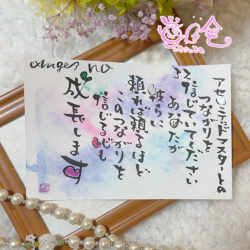 Angel no
アセンデッドマスターの
つながりを
信じていてください
あなたが
彼らに
頼れば頼るほど
このつながりを
信じる心も
成長します